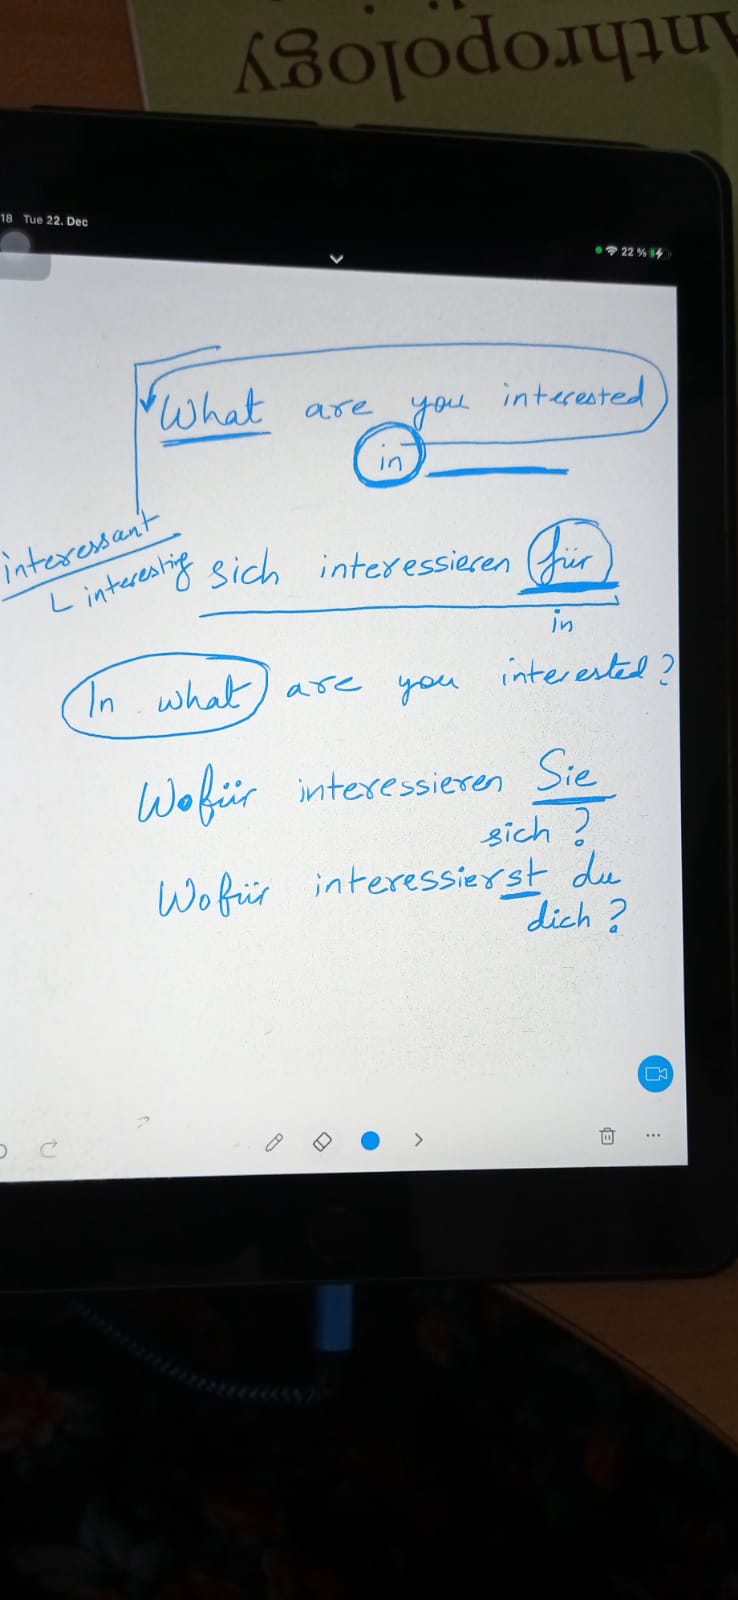 Anthropology
18 Tue 22. Dec
22 %
What are you interested
in
interessant
interesting
sich interessieren für
in
In what are you interested?
Wofür interessieren Sie
sich?
Wofür interessierst du
dich?